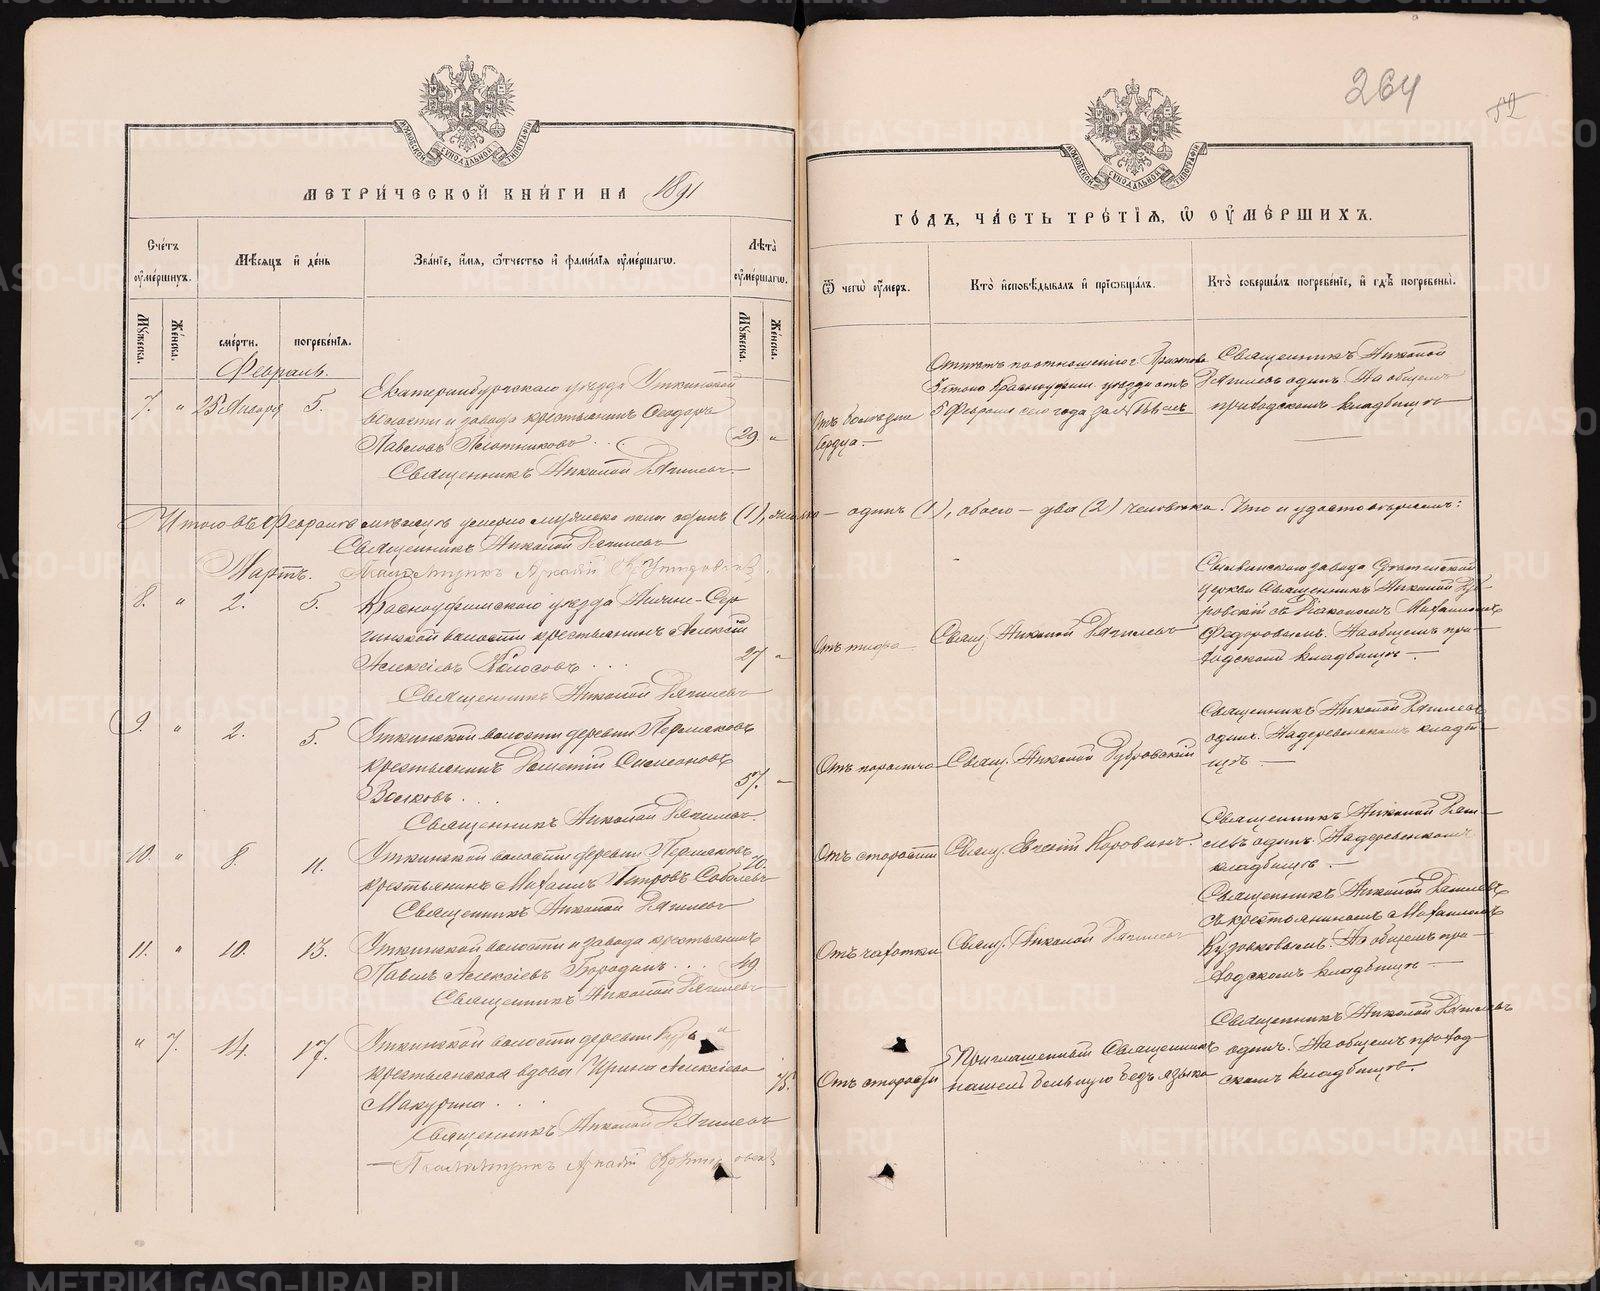 264
52
МОСКОВСКОЙ СѴНОДАЛЬНОЙ ТИПОГРАФІИ
МЕТРИ́ЧЕСКОЙ КНИ́ГИ НА 1891
Счетъ ѹмершихъ.
Мѣсяцъ и день
Званіе, имя, отчество и фамилія ѹмершагѡ.
Лѣта ѹмершагѡ.
Мѹжеска.
Женска.
смерти.
погребенія.
Мѹжеска.
Женска.
Февраль.
7. " 25 Января 5.
Екатеринбургскаго уѣзда Уткинской
волости и завода крестьянинъ Ѳеодоръ
Павловъ Плотниковъ . . . 29 "
Священникъ Николай
Итого въ Февралѣ мѣсяцѣ умерло мужеска пола одинъ (1), женска
Священникъ Николай
Мартъ. Псаломщикъ Аркадій
8. " 2. 5.
Красноуфимскаго уѣзда Нижне-Сер-
гинской волости крестьянинъ Алексѣй
Алексѣевъ Колосовъ . . . 27 "
Священникъ Николай
9. " 2. 5.
Уткинской волости деревни Пермяковъ
крестьянинъ Симеоновъ
Волковъ . . . 57. "
Священникъ Николай
10. " 8. 11.
Уткинской волости деревни Пермяковъ
крестьянинъ Михаилъ Петровъ Соболевъ 70.
Священникъ Николай
11. " 10. 13.
Уткинской волости и завода крестьянинъ
Павелъ Алексѣевъ Бородинъ . . . 49
Священникъ Николай
" 7. 14. 17.
Уткинской волости деревни
крестьянская вдова Ирина Алексѣева
Макурина . . . 75.
Священникъ Николай
Псаломщикъ Аркадій
МОСКОВСКОЙ СѴНОДАЛЬНОЙ ТИПОГРАФІИ
ГО́ДЪ, ЧА́СТЬ ТРЕ́ТІЯ, Ѡ ОУМЕ́РШИХЪ.
Ѿ чегѡ ѹмеръ.
Кто исповѣдывалъ и пріобщалъ.
Кто совершалъ погребеніе, и гдѣ погребены.
Отъ болѣзни
сердца.
Красноуфим. уѣзда отъ
5 Февраля сего года за №
Священникъ Николай
одинъ. На общемъ
приходскомъ кладбищѣ
– одинъ (1), обоего – два (2) человѣка. Что и удостовѣряемъ:
Отъ тифа
Свящ. Николай
завода
церкви Священникъ Николай Дуб-
ровскій съ Діакономъ Михаиломъ
Федоровымъ. На общемъ при-
ходскомъ кладбищѣ.
Отъ паралича
Свящ. Николай Дубровскій
Священникъ Николай
одинъ. На деревенскомъ кладби-
щѣ.
Отъ старости
Свящ. Евгеній Коровинъ.
Священникъ Николай
одинъ. На деревенскомъ
кладбищѣ.
Отъ чахотки
Свящ. Николай
Священникъ Николай
съ крестьяниномъ Михаиломъ
Кузовковымъ. На общемъ при-
ходскомъ кладбищѣ
Отъ старости
Приглашенный Священникъ
нашелъ больную безъ языка
Священникъ Николай
одинъ. На общемъ приход-
скомъ кладбищѣ.
METRIKI.GASO-URAL.RU